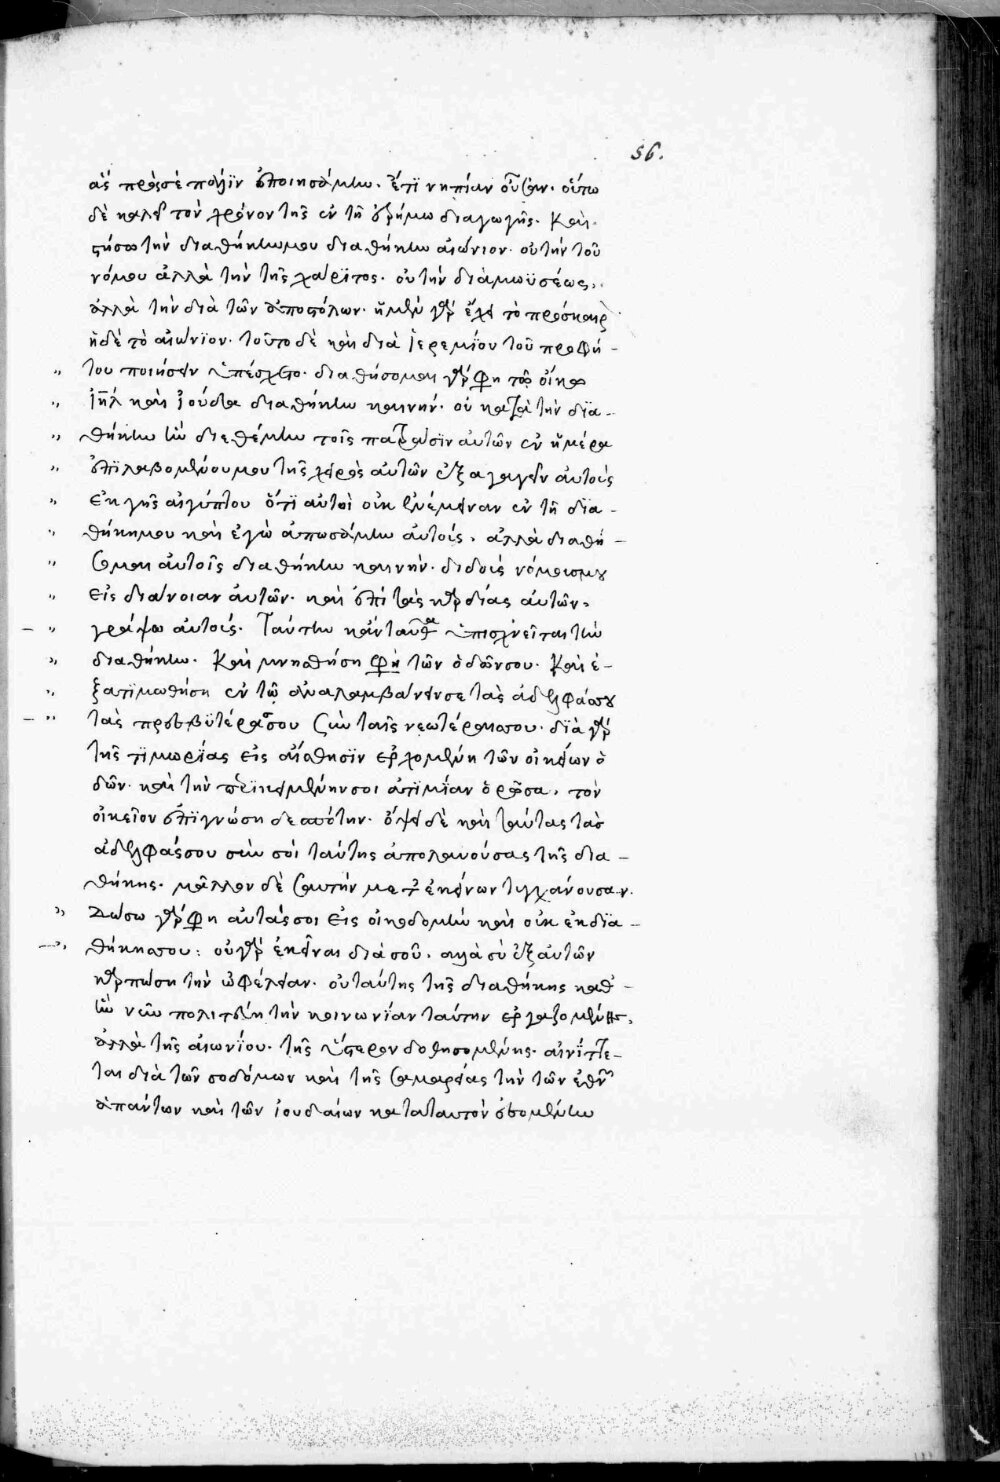 56.
ἃς πρὸς σὲ πάλϊν ἐποιησάμην. ἔτϊ νηπίαν οὖσαν. οὕτω
δὲ καλεῖ τὸν χρόνον τῆς ἐν τῆ ἐρήμω διαγωγῆς. Καὶ
στήσω τὴν διαθήκην μου διαθήκην αἰώνιον. οὐ τὴν τοῦ
νόμου ἀλλὰ τὴν τῆς χάρϊτος. οὐ τὴν διὰ μωϋσέως,
ἀλλὰ τὴν διὰ τῶν ἀποστόλων. ἡ μὲν γὰρ ἔχει τὸ πρόσκαιρ
ἡ δὲ τὸ αἰώνϊον. τοῦτο δὲ καὶ διὰ ἱερεμίου τοῦ προφή-
" του ποιήσειν ὑπέσχετο. διαθήσομαι γάρ φησι τῶ οἴκω
" ἰηλ καὶ ἰούδα διαθήκην καινήν. οὐ κατὰ τὴν δϊα-
" θήκην ἣν διεθέμην τοῖς πατράσϊν αὐτῶν ἐν ἡμέρα
" ἐπϊλαβομένου μου τῆς χειρὸς αὐτῶν ἐξαγαγεῖν αὐτοὺς
" ἐκ γῆς αἰγύπτου ὅτϊ αὐτοὶ οὐκ ἐνέμειναν ἐν τῆ δϊα-
" θήκη μου καὶ ἐγὼ ἀπωσάμην αὐτούς. ἀλλὰ διαθή-
" σομαι αὐτοῖς διαθήκην καινήν. διδοὺς νόμους μου
" εἰς διάνοιαν αὐτῶν. καὶ ἐπὶ τὰς καρδίας αὐτῶν
" γράψω αὐτούς. Ταύτην κἀνταῦθα ὑπισχνεῖται τὴν
" διαθήκην. Καὶ μνησθήση φησὶ τῶν ὁδῶν σου. Καὶ ἐ-
" ξατιμωθήση ἐν τῶ ἀναλαμβάνειν σε τὰς ἀδελφάς σου
" τὰς πρεσβϋτέρας σου σὺν ταῖς νεωτέραις σου. δϊὰ γὰρ
τῆς τιμωρίας εἰς αἴσθησϊν ἐρχομένη τῶν οἰκείων ὁ
δῶν. καὶ τὴν περϊκειμένην σοι ἀτϊμίαν ὁρῶσα, τὸν
οἰκεῖον ἐπϊγνώση δεσπότην. ὄψει δὲ καὶ ταύτας τὰς
ἀδελφάς σου σὺν σοὶ ταύτης ἀπολαυούσας τῆς δια-
θήκης. μᾶλλον δὲ σαυτὴν μετ' ἐκείνων τυγχάνουσαν.
" Δώσω γάρ φησι αὐτάς σοι εἰς οἰκοδομὴν καὶ οὐκ ἐκ δϊα-
" θήκης σου: οὐ γὰρ ἐκεῖναι διὰ σοῦ. ἀλλὰ σὺ ἐξ αὐτῶν
καρπώση τὴν ὠφέλειαν. οὐ ταύτης τῆς διαθήκης καθ'-
ἣν νῦν πολιτεύη τὴν κοινωνίαν ταύτην ἐργαζομένης,
ἀλλὰ τῆς αἰωνίου. τῆς ὕστερον δοθησομένης. αἰνίττε-
ται διὰ τῶν σοδόμων καὶ τῆς σαμαρείας τὴν τῶν ἐθνῶν
ἁπάντων καὶ τῶν ἰουδαίων κατὰ ταυτὸν ἐσομένην